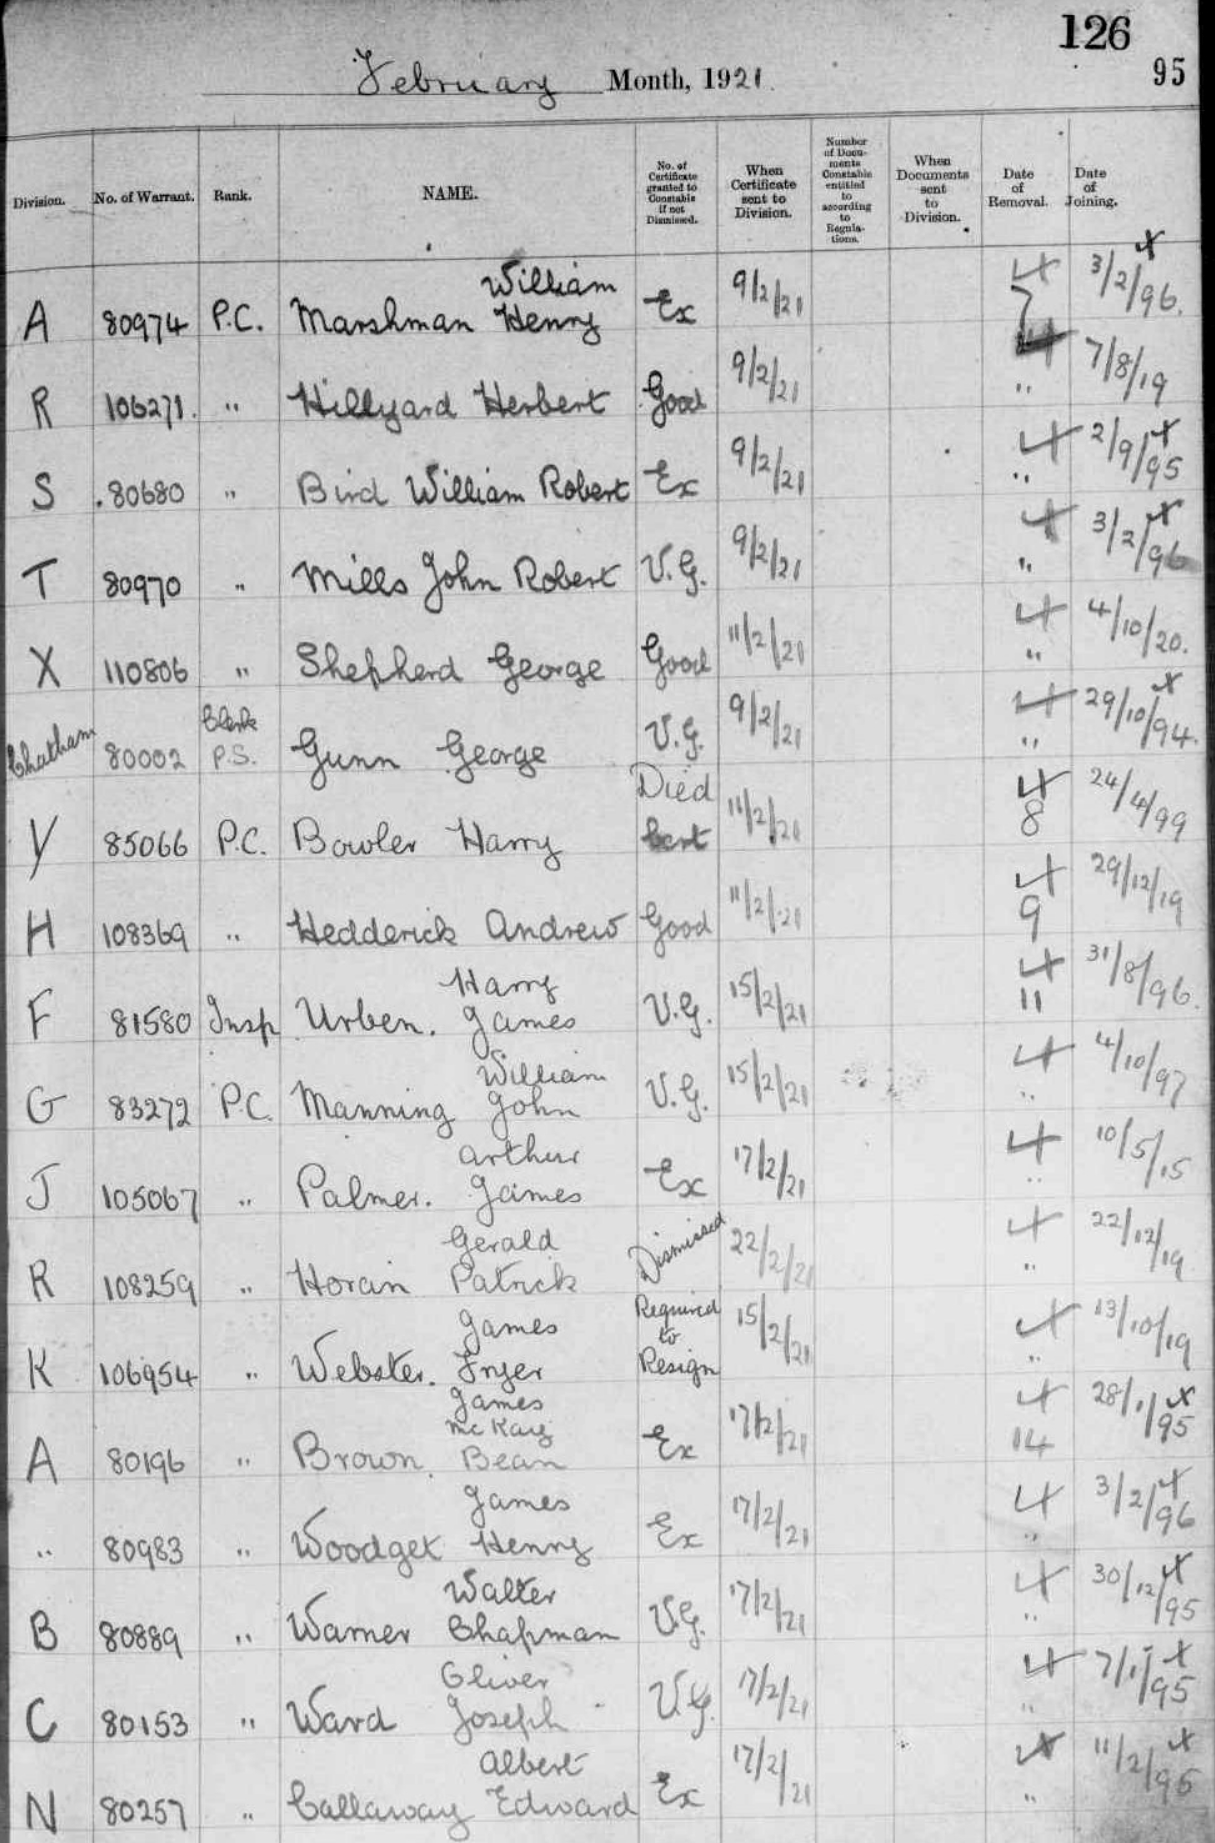 126
95
February Month, 1921.
Division. No. of Warrant. Rank. NAME. No. of Certificate granted to Constable if not Dismissed. When Certificate sent to Division. Number of Docu-ments Constable entitled to according to Regula-tions. When Documents sent to Division. Date of Removal. Date of Joining.
A 80974 P.C. Marshman William Henry Ex 9/2/21 7 3/2/96.
R 106271. " Hillyard Herbert Good 9/2/21 " 7/8/19
S .80680 " Bird William Robert Ex 9/2/21 " 2/9/95
T 80970 " Mills John Robert V.G. 9/2/21 " 3/2/96
X 110806 " Shepherd George Good 11/2/21 " 4/10/20.
Chatham 80002 Clerk P.S. Gunn George V.G. 9/2/21 " 29/10/94.
Y 85066 P.C. Bowler Harry Died Cert 11/2/21 8 24/4/99
H 108369 " Hedderick Andrew Good 11/2/21 9 29/12/19
F 81580 Insp Urben. Harry James V.G. 15/2/21 11 31/8/96.
G 83272 P.C. Manning William John V.G. 15/2/21 " 4/10/97
J 105067 " Palmer. Arthur James Ex 17/2/21 " 10/5/15
R 108259 " Horan Gerald Patrick Dismissed 22/2/21 " 22/12/19
K 106954 " Webster. James Fryer Required to Resign 15/2/21 " 13/10/19
A 80196 " Brown. James McKay Bean Ex 17/2/21 14 28/1/95
" 80983 " Woodget James Henry Ex 17/2/21 " 3/2/96
B 80889 " Warner Walter Chapman V.G. 17/2/21 " 30/12/95
C 80153 " Ward Oliver Joseph V.G. 17/2/21 " 7/1/95
N 80257 " Callaway Albert Edward Ex 17/2/21 " 11/2/95